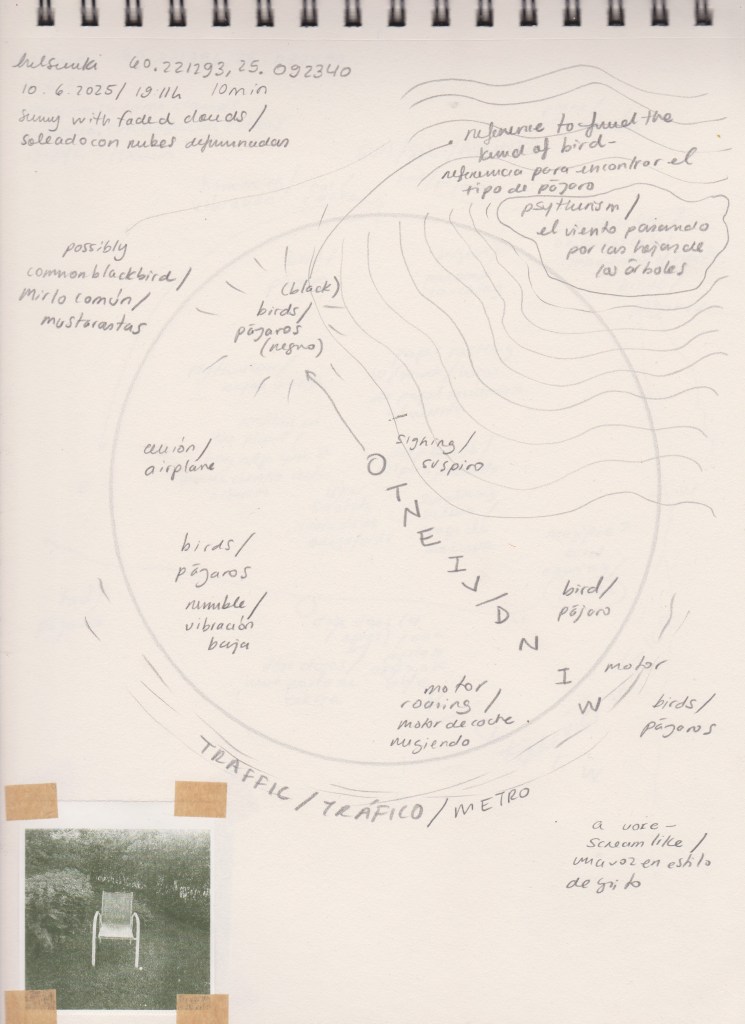 helsinki 60.221293, 25.092340
10.6.2025/ 19:11h 10min
sunny with faded clouds/
soleado con nubes difuminadas
reference to find the
kind of bird-
referencia para encontrar el
tipo de pájaro
psythurism/
el viento pasando
por las hojas de
los árboles
possibly
common blackbird/
mirlo común/
mustarastas
(black)
birds/
pájaros
(negro)
sighing/
suspiro
avión/
airplane
WIND/VIENTO
birds/
pájaros
rumble/
vibración
baja
bird/
pájaro
motor
motor
roaring/
motor de coche
rugiendo
birds/
pájaros
TRAFFIC/TRÁFICO/METRO
a voice-
scream like/
una voz en estilo
de grito